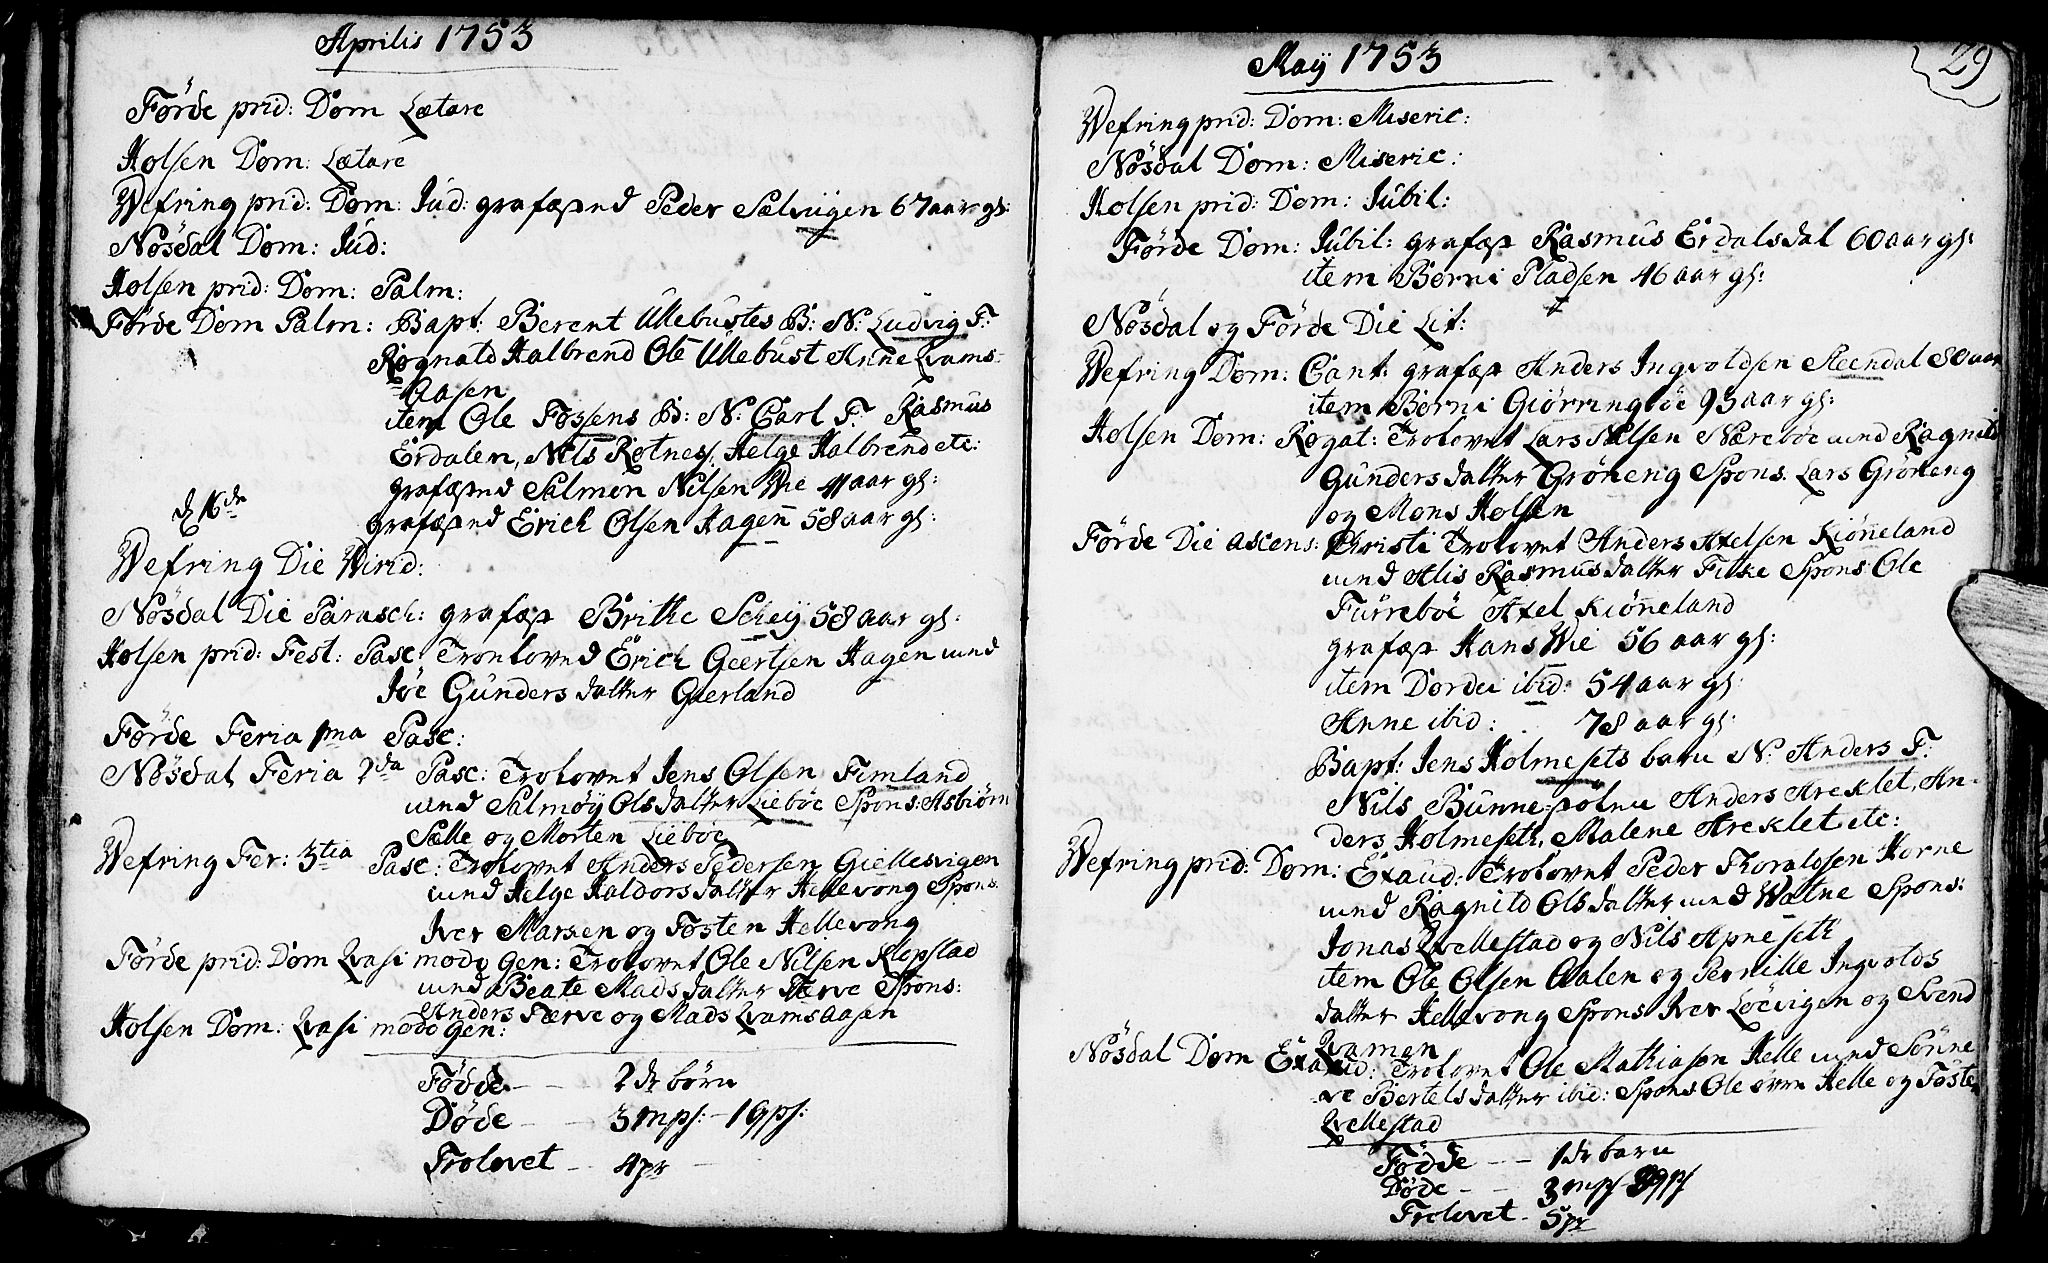 Aprilis 1753
Førde prid: Dom Lætare
Holsen Dom: Lætare
Wefring prid: Dom: Jud: grafæstned Peder Sælvigen 67 aar gl:
Nösdal Dom: Jud:
Holsen prid: Dom: Palm:
Förde Dom Palm: Bapt: Berent Ullebustes B: N: Ludvig F:
Rognald Halbrend Ole Ullebust Anne Qvams-
Aasen
item Ole Fossens B: N: Carl F: Rasmus
Erdalen, Nils Rotnes, Helge Halbrend etc:
grafæstned Salmon Nilsen Wie 41 aar gl:
d 16de grafæstned Erich Olsen Hagen 58 aar gl:
Wefring Die Virid:
Nösdal Die Parasch: grafæst Brithe Scheij 58 aar gl:
Holsen prid: Fest: Pasc Tronlovned Erich Geertsen Hagen med
Jöe Gundersdatter Gierland
Förde Feria 1ma Pasc:
Nösdal Feria 2da Pasc: Trolovet Jens Olsen Fimland
med Salmöy Olsdatter Liebøe Spons: Asbiörn
Sælle og Morten Liebøe
Wefring Fer: 3tia Pasc: Trolovet Anders Pedersen Giellesvigen
med Helge Haldorsdatter Hellevong Spons.
Iver Marken og Tosten Hellevong
Förde prid: Dom Qvasi modo gen: Trolovet Ole Nilsen Klopstad
med Beate Madsdatter Færve Spons:
Anders Færve og Mads Qvamsaasen
Holsen Dom: Qvasi modo gen:
Födde - - 2de börn
Döde - - 3 mps: - 19 ps:
Trolovet - 4 pr
29
Maij 1753
Wefring prid: Dom: Miseric:
Nösdal Dom: Miseric:
Holsen prid: Dom: Jubil:
Förde Dom: Jubil: grafæst Rasmus Erdalsdal 60 aar gl:
item Borni Pladsen 46 aar gl:
Nösdal og Förde Die Lit:
Wefring Dom: Cant: grafæst Anders Ingvoldsen Steendal 80 aar
item Borni Giörringböe 93 aar gl:
Holsen Dom: Rogat: Trolovet Lars Nilsen Næreböe med Ragnild
Gundersdatter Gröneng Spons. Lars Gröneng
og Mons Holsen
Förde Die Ascens: Christi Trolovet Anders Axelsen Kiöneland
med Alis Rasmusdatter Fiske Spons: Ole
Furreböe Axel Kiöneland
grafæst Hans Wie 56 aar gl:
item Dordei ibid: 54 aar gl:
Anne ibid: 78 aar gl:
Bapt: Jens Holmesets barn N: Anders F:
Nils Bunne Anders Areklet, An-
ders Holmeseth, Malene Areklet etc:
Wefring prid: Dom: Exaud: Trolovet Peder Thoralssen Horne
med Ragnild Olsdatter Walne Spons:
Jonas Qvellestad og Nils Apneseth
item Ole Olsen Aalen og Pernille Ingvolds
datter Hellevong Spons Iver Löevigen og Svend
Qvamen
Nösdal Dom Exaud: Trolovet Ole Mathiasen Helle med Sönne
ve Bertelsdatter ibid: Spons Ole övre Helle og Toste
Qvellestad
Födde - - 1 de barn
Döde - - 3 mps
Trolovet - 5 pr